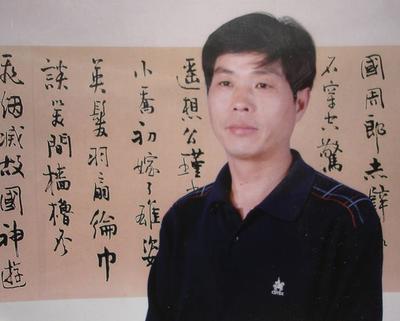 國周郎赤壁
石穿空驚
遙想公瑾
小喬初嫁了雄姿
英發羽扇綸巾
談笑間檣櫓灰
飛烟滅故國神遊